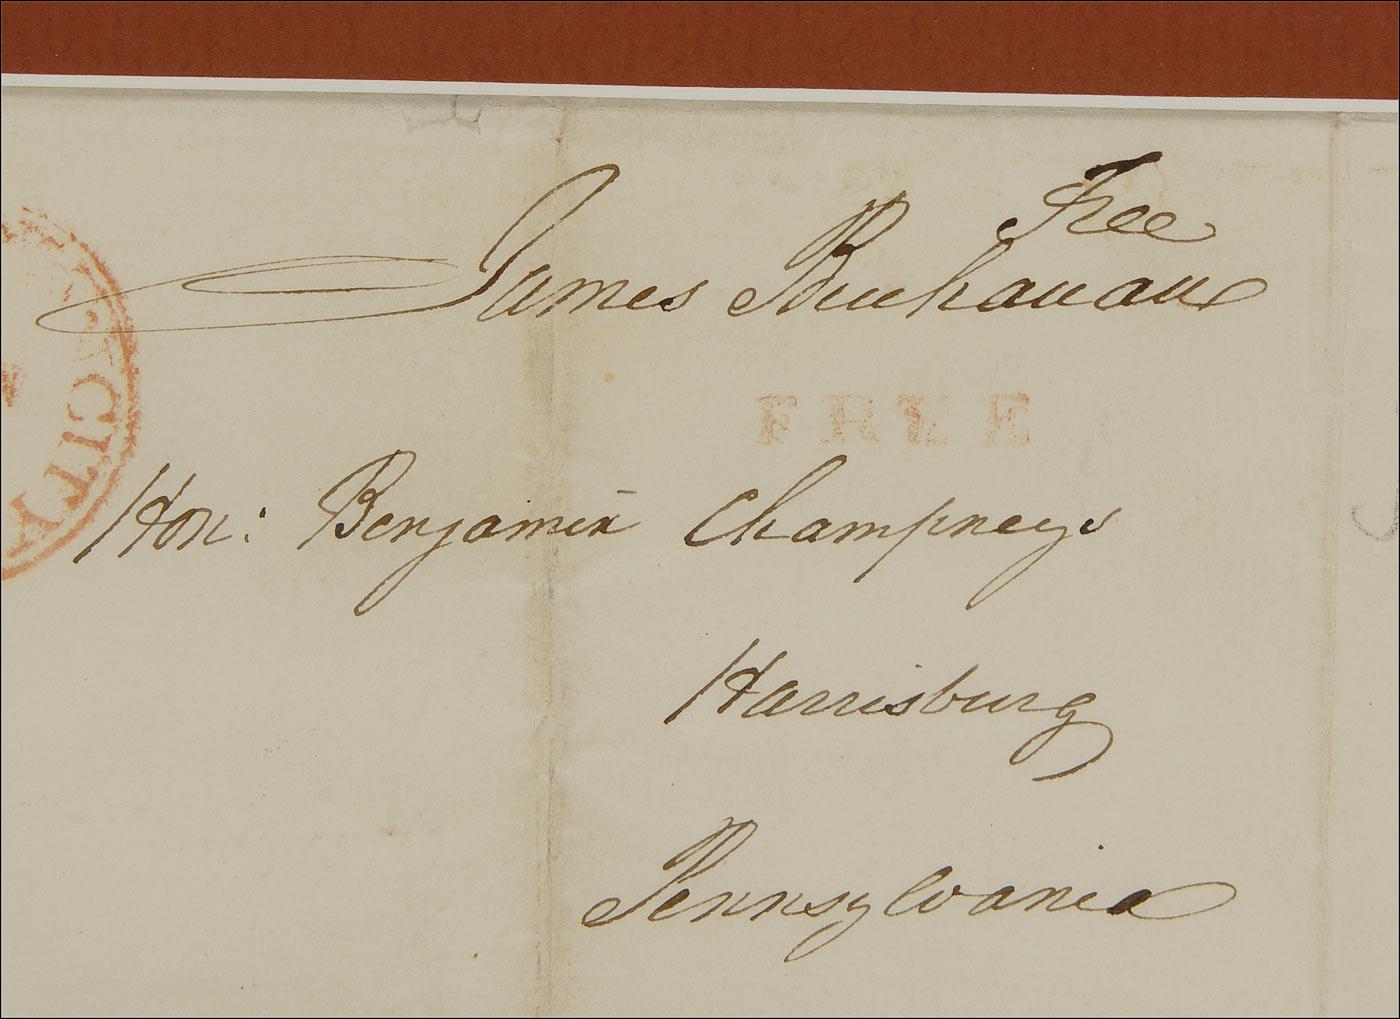 Free
James Buchanan
FREE
CITY
Hon: Benjamin Champneys
Harrisburg
Pennsylvania